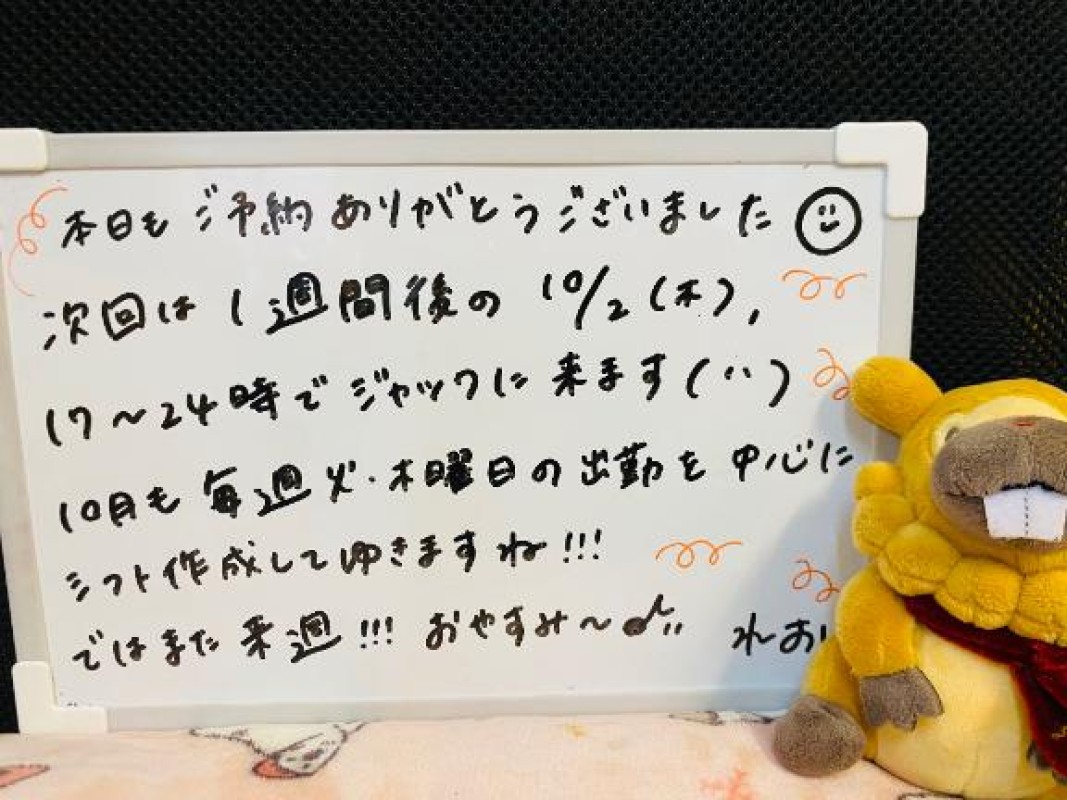 本日もご予約ありがとうございました
次回は1週間後の10/2(木),
17〜24時でジャックに来ます(¨)
10月も毎週火・木曜日の出勤を中心に
シフト作成してゆきますね!!!
ではまた来週!!!おやすみ〜♪ れお